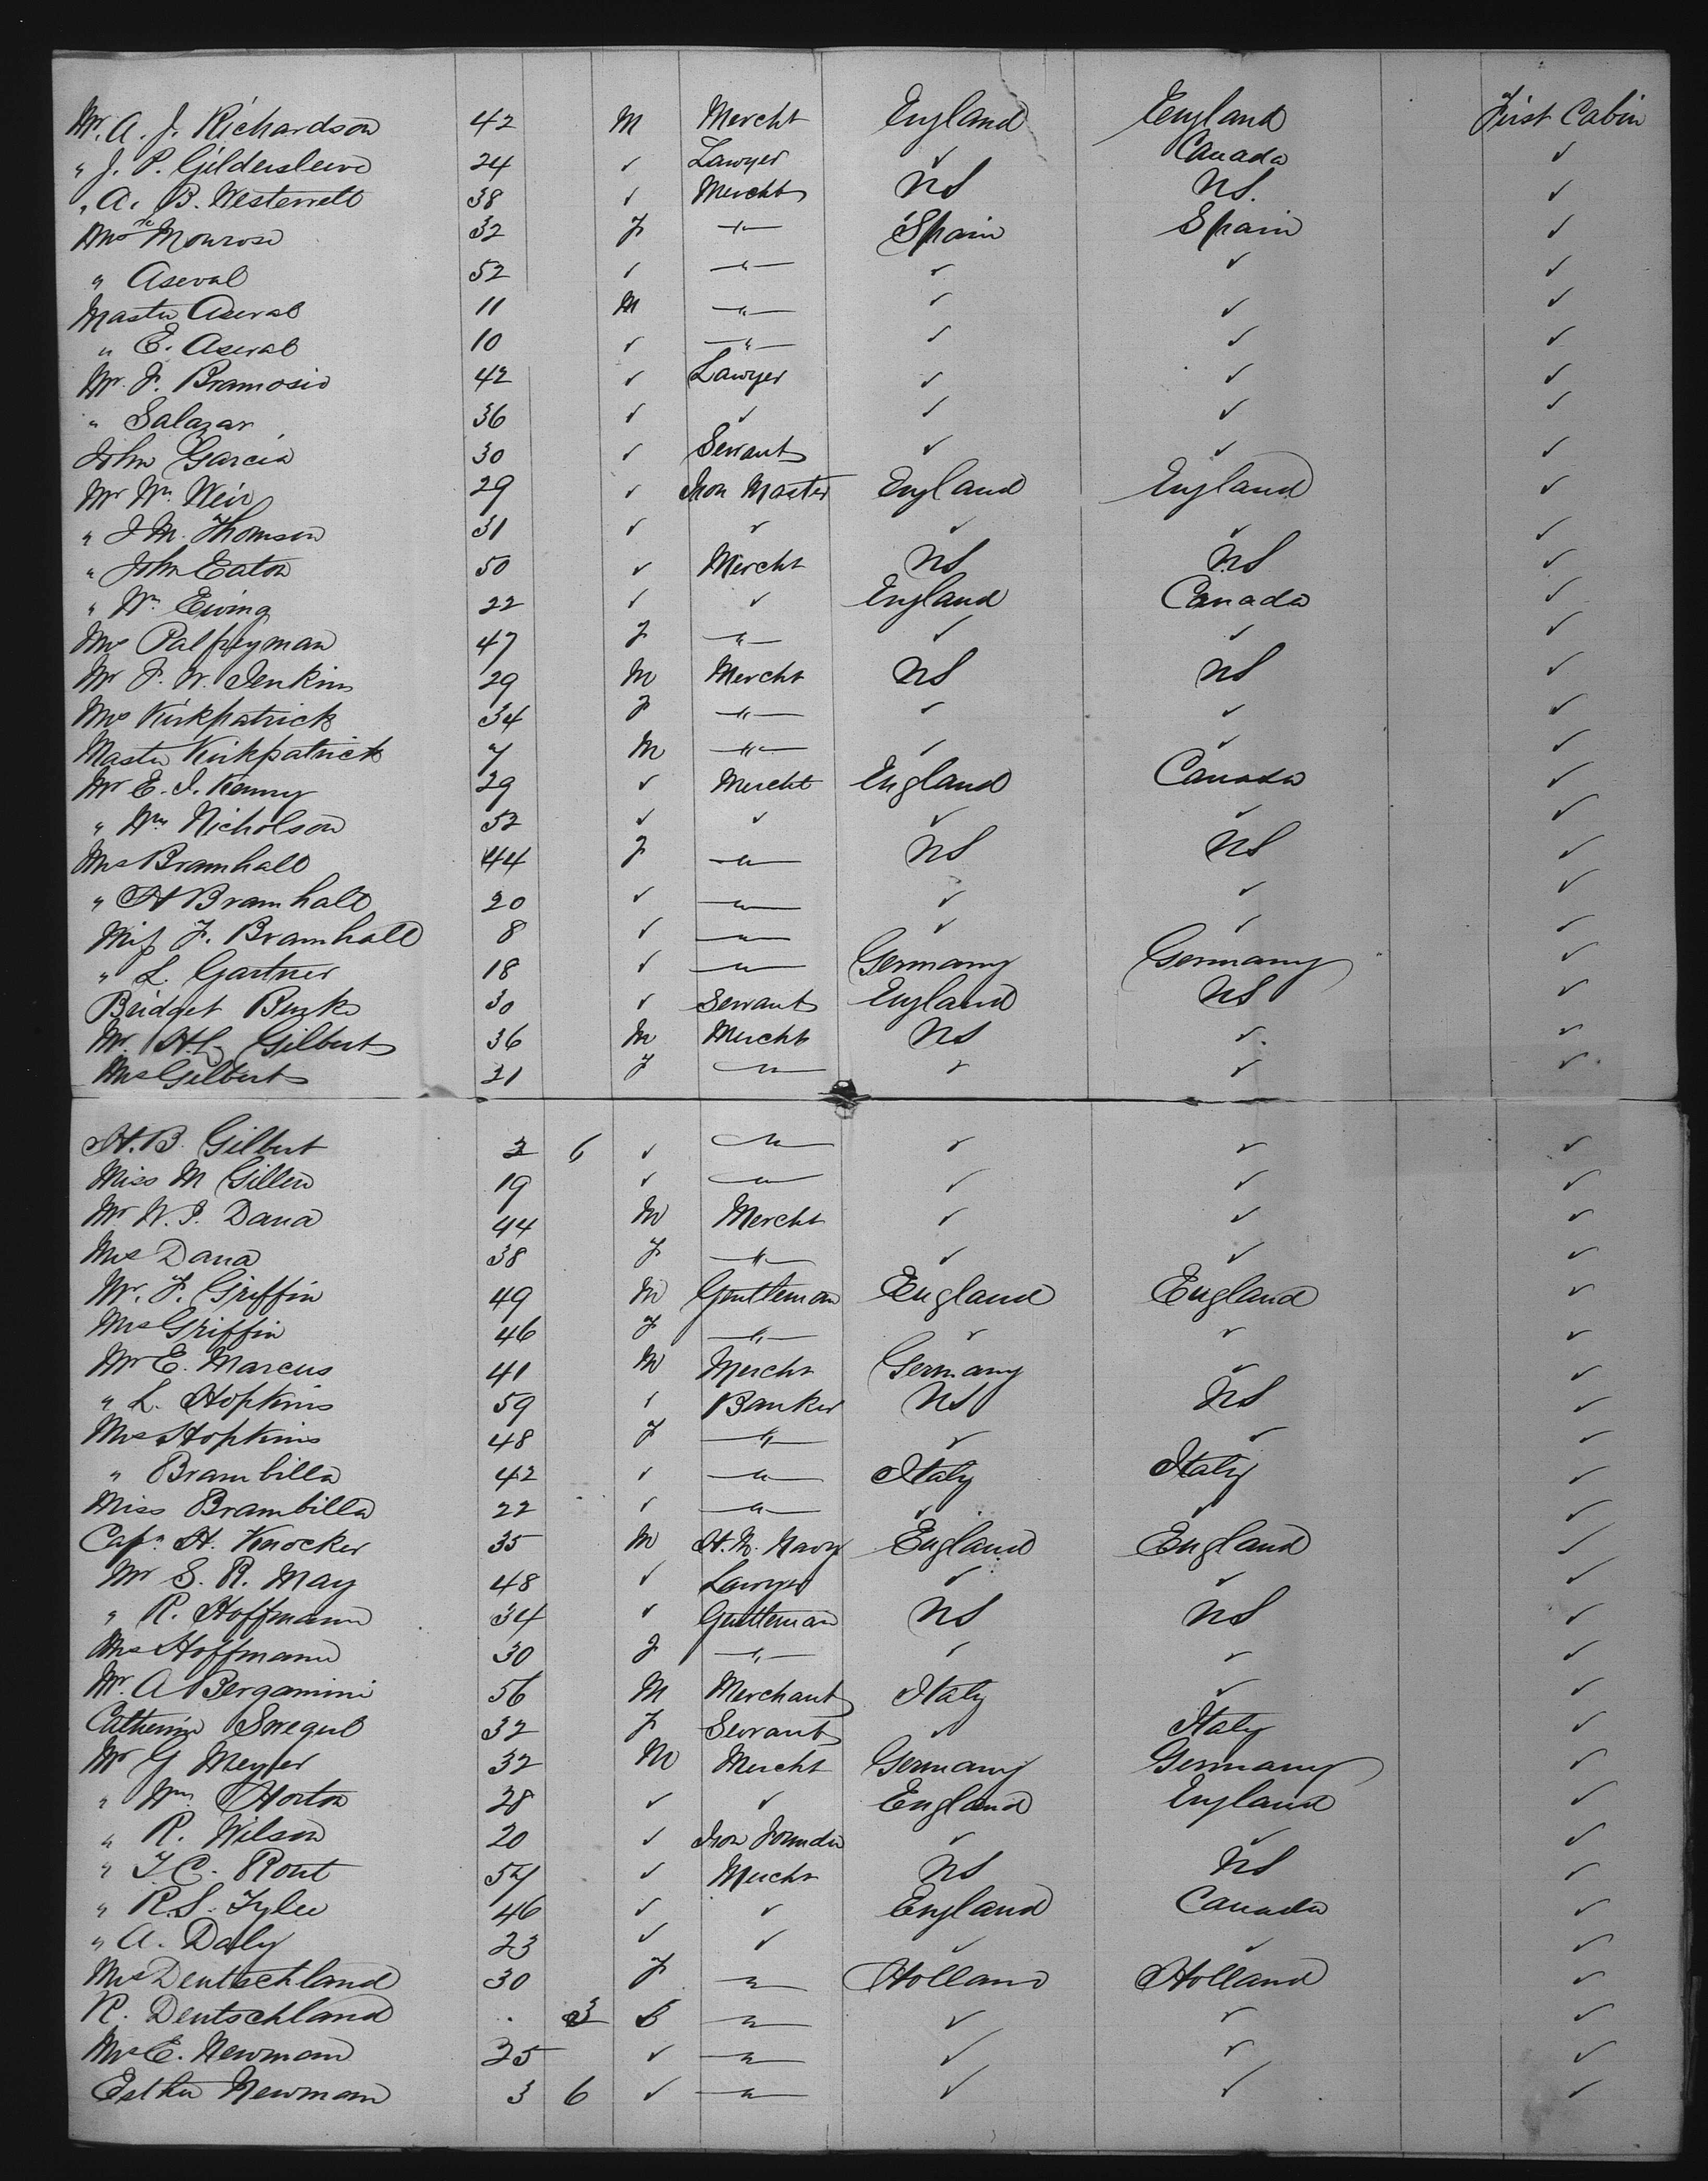 Mr. A. J. Richardson 42 M Mercht England England First Cabin
" J. P. Gildersleeve 24 ✓ Lawyer ✓ Canada ✓
" A. B. Westervelt 38 ✓ Mercht US US. ✓
Monrose 32 F —"— Spain Spain ✓
" Aseval 52 ✓ —"— ✓ ✓ ✓
Master Aseval 11 M —"— ✓ ✓ ✓
" E. Aseval 10 ✓ —"— ✓ ✓ ✓
Mr. J. Bramosio 42 ✓ Lawyer ✓ ✓ ✓
" Salazar 36 ✓ ✓ ✓ ✓ ✓
John Garcia 30 ✓ Servant ✓ ✓ ✓
Mr Wm. Weir 29 ✓ Iron Master England England ✓
" J. M. Thomson 31 ✓ ✓ ✓ ✓ ✓
" John Eaton 50 ✓ Mercht US US ✓
" Wm. Ewing 22 ✓ ✓ England Canada ✓
Mrs Palfreyman 47 F —"— ✓ ✓ ✓
Mr F. W. Jenkins 29 M Mercht US US ✓
Mrs Kirkpatrick 34 F —"— ✓ ✓ ✓
Master Kirkpatrick 7 M —"— ✓ ✓ ✓
Mr E. J. Kenny 29 ✓ Mercht England Canada ✓
" Wm Nicholson 52 ✓ ✓ ✓ ✓ ✓
Mrs Bramhall 44 F —"— US US ✓
" H Bramhall 20 ✓ —"— ✓ ✓ ✓
Miss F. Bramhall 8 ✓ —"— ✓ ✓ ✓
" L. Gartner 18 ✓ —"— Germany Germany ✓
Bridget Burke 30 ✓ Servant England US ✓
Mr. H. L. Gilbert 36 M Mercht US ✓ ✓
Mrs Gilbert 31 F —"— ✓ ✓ ✓
H. B. Gilbert 2 6 ✓ —"— ✓ ✓ ✓
Miss M Gillen 19 ✓ —"— ✓ ✓ ✓
Mr W. P. Dana 44 M Mercht ✓ ✓ ✓
Mrs Dana 38 F —"— ✓ ✓ ✓
Mr. F. Griffin 49 M Gentleman England England ✓
Mrs Griffin 46 F —"— ✓ ✓ ✓
Mr E. Marcus 41 M Mercht Germany ✓ ✓
" L. Hopkins 59 ✓ Banker US US ✓
Mrs Hopkins 48 F —"— ✓ ✓ ✓
" Brambilla 42 ✓ —"— Italy Italy ✓
Miss Brambilla 22 ✓ —"— ✓ ✓ ✓
Capn. H. Knocker 35 M H. M. Navy England England ✓
Mr S. R. May 48 ✓ Lawyer ✓ ✓ ✓
" R. Hoffmann 34 ✓ Gentleman US US ✓
Mrs Hoffmann 30 F —"— ✓ ✓ ✓
Mr. A Bergamini 56 M Merchant Italy ✓ ✓
Catherine 32 F Servant ✓ Italy ✓
Mr G Meyer 32 M Mercht Germany Germany ✓
" Wm Horton 28 ✓ ✓ England England ✓
" R. Wilson 20 ✓ Iron Founder ✓ ✓ ✓
" T. C. Rout 54 ✓ Mercht US US ✓
" R. S. Tylee 46 ✓ ✓ England Canada ✓
" A. Daly 23 ✓ ✓ ✓ ✓ ✓
Mrs Deutschland 30 F —"— Holland Holland ✓
R. Deutschland . 3 —"— ✓ ✓ ✓
Mrs E. Newman 25 ✓ —"— ✓ ✓ ✓
Esther Newman 3 6 ✓ —"— ✓ ✓ ✓